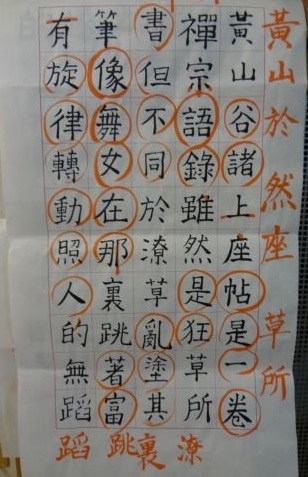 黃山於然座草所
黃山谷諸上座帖是一卷
禪宗語錄雖然是狂草所
書但不同於潦草亂塗其
筆像舞女在那裏跳著富
有旋律轉動照人的無蹈
潦裏跳蹈